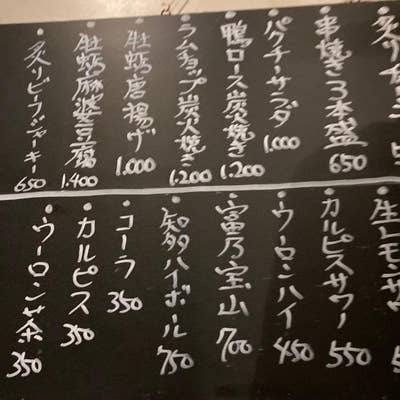 炙り
串焼き3本盛
650
パクチーサラダ
1.000
鴨ロース炭火焼き
1.200
ラムチョップ炭火焼き
1.200
牡蛎唐揚げ
1.000
牡蛎麻婆豆腐
1.400
炙りビーフジャーキー
650
生レモンサ
カルピスサワー
550
ウーロンハイ
450
富乃宝山
700
知多ハイボール
750
コーラ
350
カルピス
350
ウーロン茶
350